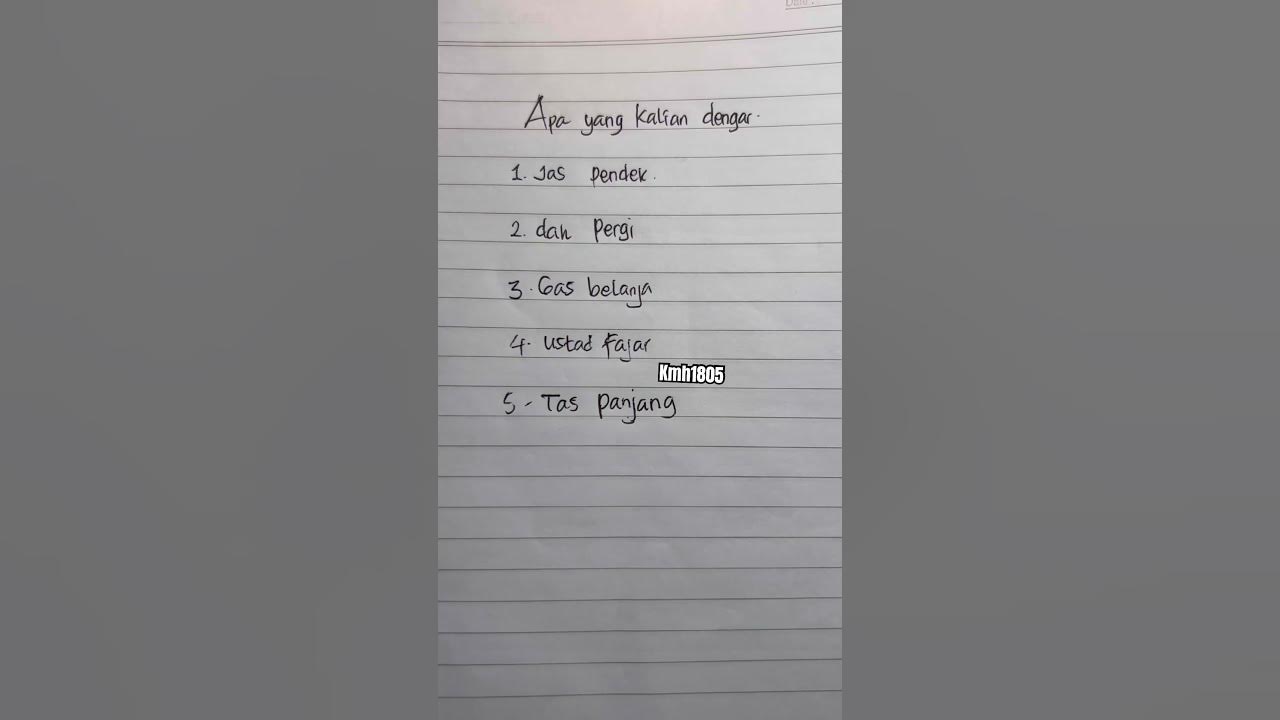 Date :
Apa yang Kalian dengar.
1. Jas pendek.
2. dan Pergi
3. Gas belanja
4. Ustad Fajar
Kmh1805
5 - Tas panjang